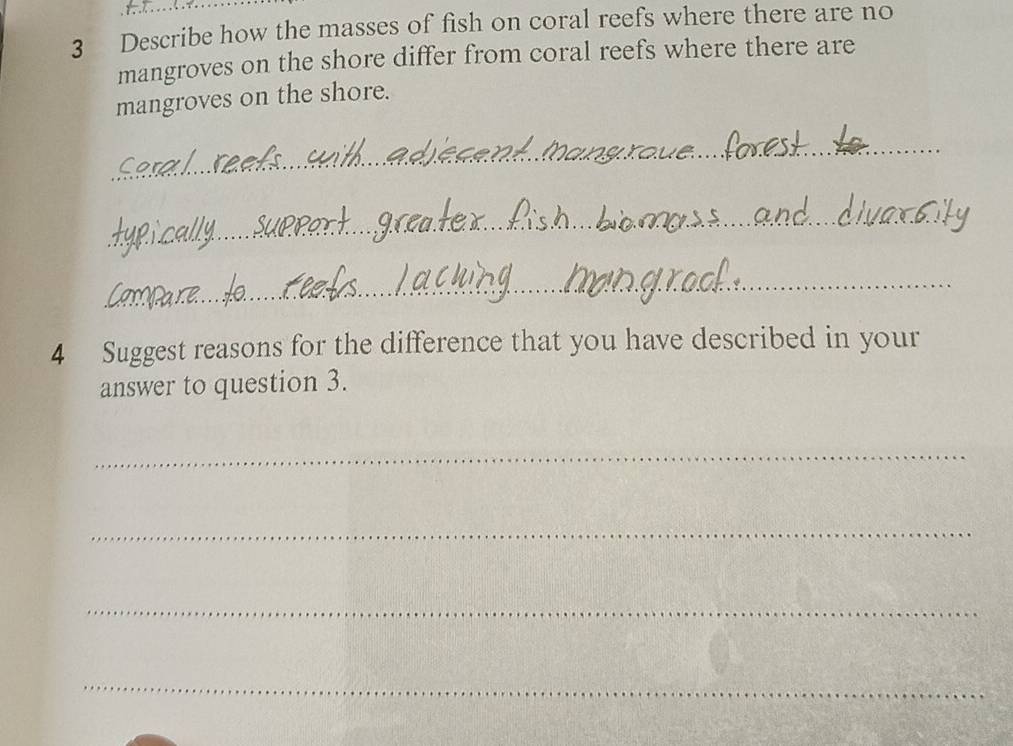 3 Describe how the masses of fish on coral reefs where there are no
mangroves on the shore differ from coral reefs where there are
mangroves on the shore.
coral reefs with adjecent mangrove forest to
typically support greater fish biomass and divarsity
Compare to reefs laching mangroct.
4 Suggest reasons for the difference that you have described in your
answer to question 3.